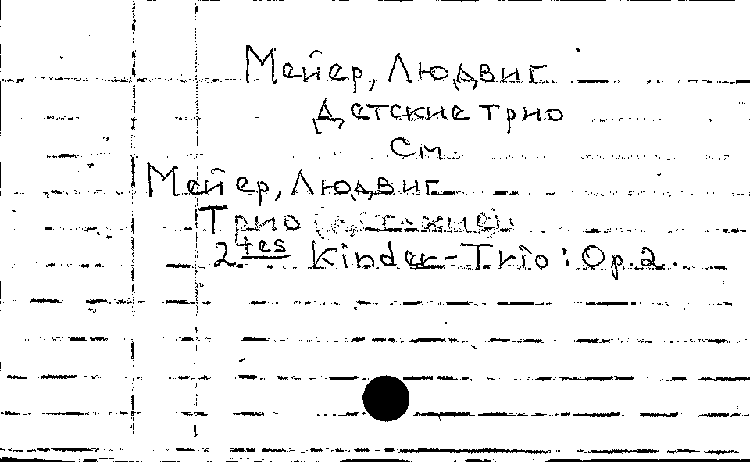 Мейер, Людвиг
Детские трио
См.
Мейер, Людвиг
Трио (детские)
2tes Kinder-Trio: Op.2.